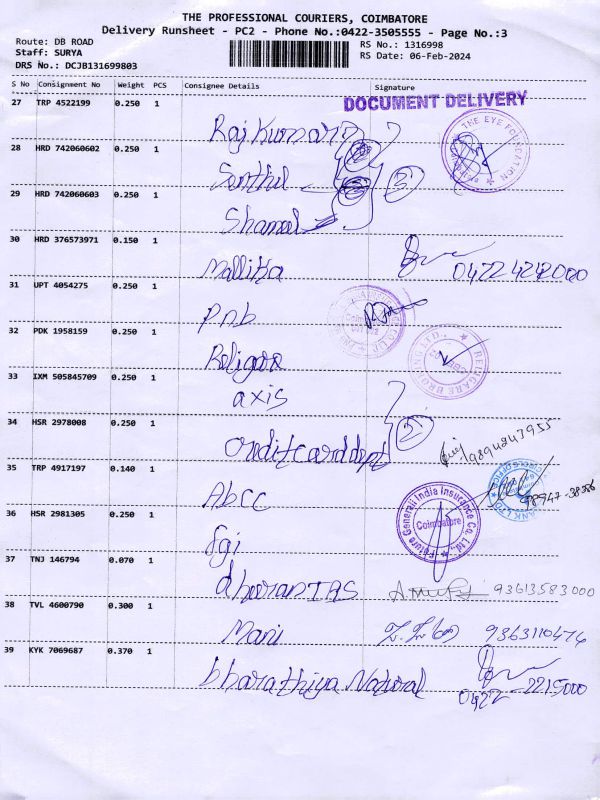 THE PROFESSIONAL COURIERS, COIMBATORE
Delivery Runsheet - PC2 - Phone No.:0422-3505555 - Page No.:3
Route: DB ROAD
RS No.: 1316998
Staff: SURYA
RS Date: 06-Feb-2024
DRS No.: DCJB131699803
S No Consignment No Weight PCS Consignee Details Signature
27 TRP 4522199 0.250 1
DOCUMENT DELIVERY
Raj Kumar
THE EYE FOUNDATION
28 HRD 742060602 0.250 1
Senthil
29 HRD 742060603 0.250 1
Shamal
30 HRD 376573971 0.150 1
Mallika
0422 4242000
31 UPT 4054275 0.250 1
Pnb
32 PDK 1958159 0.250 1
Religare
33 IXM 505845709 0.250 1
axis
34 HSR 2978008 0.250 1
creditcard dept
9894843955
35 TRP 4917197 0.140 1
Abcc
98947-38556
36 HSR 2981305 0.250 1
Future Generali India Insurance Co. Ltd.,
Coimbatore
fgi
37 TNJ 146794 0.070 1
dheeran IAS
93613583000
38 TVL 4600790 0.300 1
Mani
9363110476
39 KYK 7069687 0.370 1
bharathiya Natural
0422 - 2215000